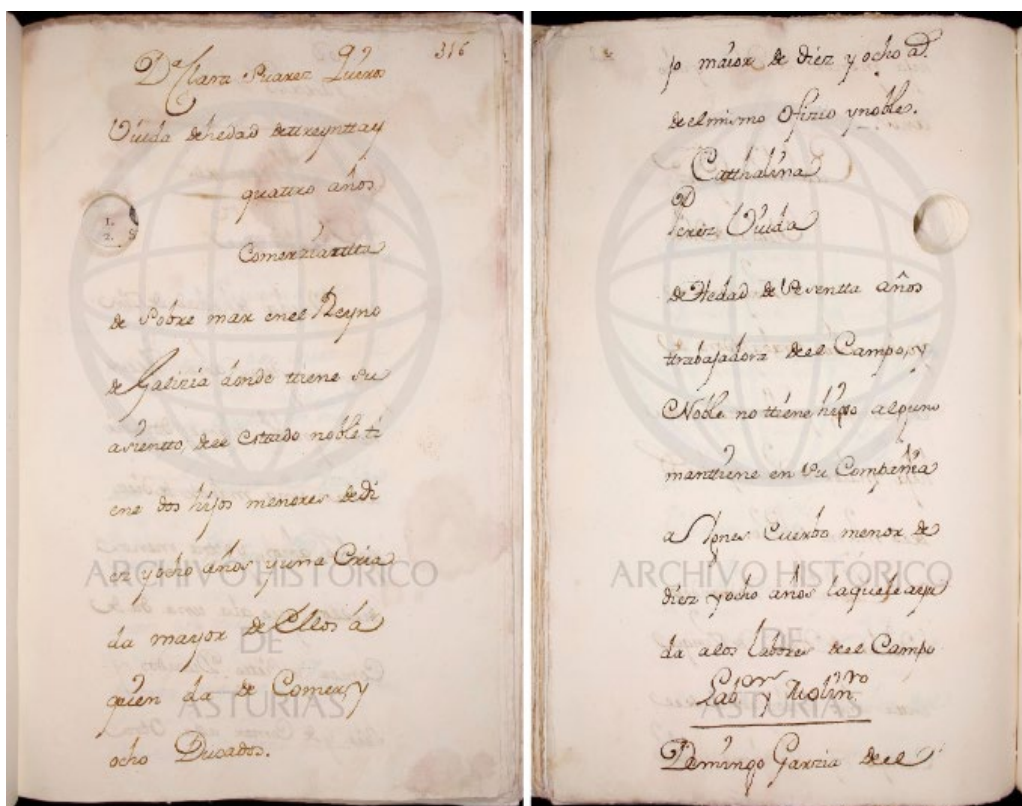 316
Dª Clara Suarez Queros
Viuda de hedad de ttreynttay
quattro años
Comerziantta
de Sobre mar enel Reyno
de Galizia donde ttiene su
asientto, deel Esttado noble ti
ene dos hijos menores de di
ez y ocho años y una Cria
da mayor de Ellos á
quien da de Comer, y
ocho Ducados.
jo maior de diez y ocho aˢ.
de el mismo Ofizio y noble.
Catthalina
Perez, Viuda
de Hedad de Sesentta años
ttrabajadora deel Campo, y
Noble no ttiene hijo alguno
manttiene en su Compañia
a Ygnes Cuerbo menor de
diez y ocho años laquele aiu
da a los labores deel Campo
Labᵒʳ y Molinʳᵒ
Domingo Garzia deel
ARCHIVO HISTÓRICO
DE
ASTURIAS
ARCHIVO HISTÓRICO
DE
ASTURIAS